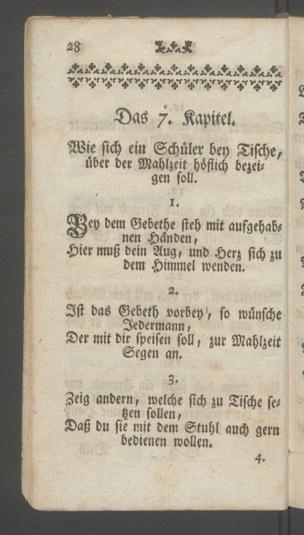 28
Das 7. Kapitel.
Wie sich ein Schüler bey Tische,
über der Mahlzeit höflich bezei-
gen soll.
1.
Bey dem Gebethe steh mit aufgehab-
nen Händen,
Hier muß dein Aug, und Herz sich zu
dem Himmel wenden.
2.
Ist das Gebeth vorbey, so wünsche
Jedermann,
Der mit dir speisen soll, zur Mahlzeit
Segen an.
3.
Zeig andern, welche sich zu Tische se-
tzen sollen,
Daß du sie mit dem Stuhl auch gern
bedienen wollen.
4.